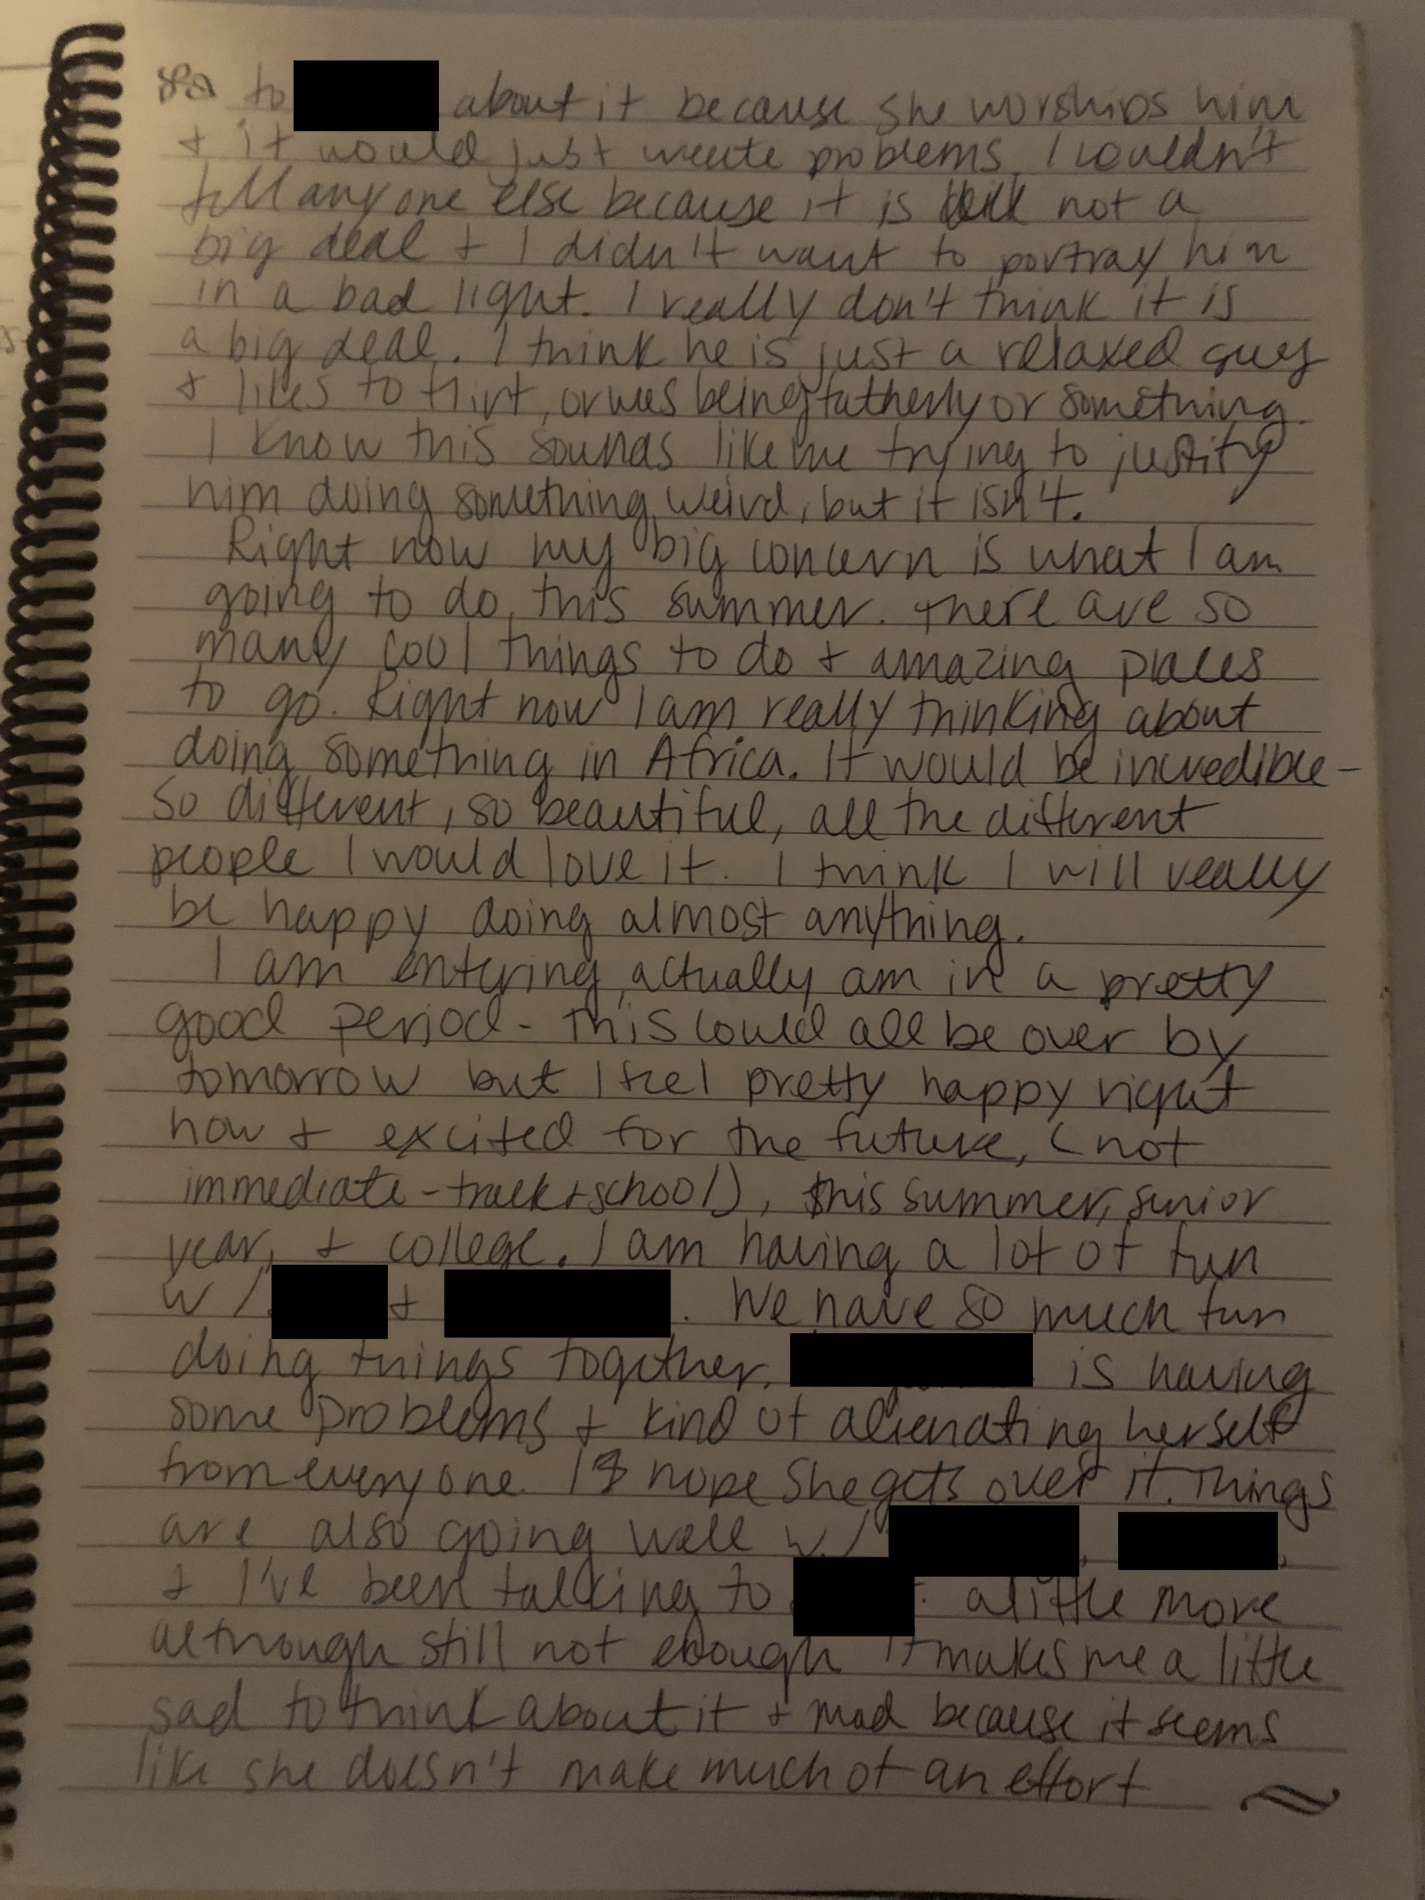 to about it because she worships him
+ it would just create problems. I couldn't
tell anyone else because it is not a
big deal + I didn't want to portray him
in a bad light. I really don't think it is
a big deal. I think he is just a relaxed guy
+ likes to flirt, or was being fatherly or something.
I know this sounds like me trying to justify
him doing something weird, but it isn't.
Right now my big concern is what I am
going to do this summer. There are so
many cool things to do + amazing places
to go. Right now I am really thinking about
doing something in Africa. It would be incredible -
so different, so beautiful, all the different
people I would love it. I think I will really
be happy doing almost anything.
I am entering, actually am in a pretty
good period - this could all be over by
tomorrow but I feel pretty happy right
now + excited for the future, (not
immediate - track + school), this summer, senior
year, + college. I am having a lot of fun
w/ + . We have so much fun
doing things together. is having
some problems + kind of alienating herself
from everyone. I hope she gets over it. Things
are also going well w/ , ,
+ I've been talking to a little more
although still not enough. It makes me a little
sad to think about it + mad because it seems
like she doesn't make much of an effort